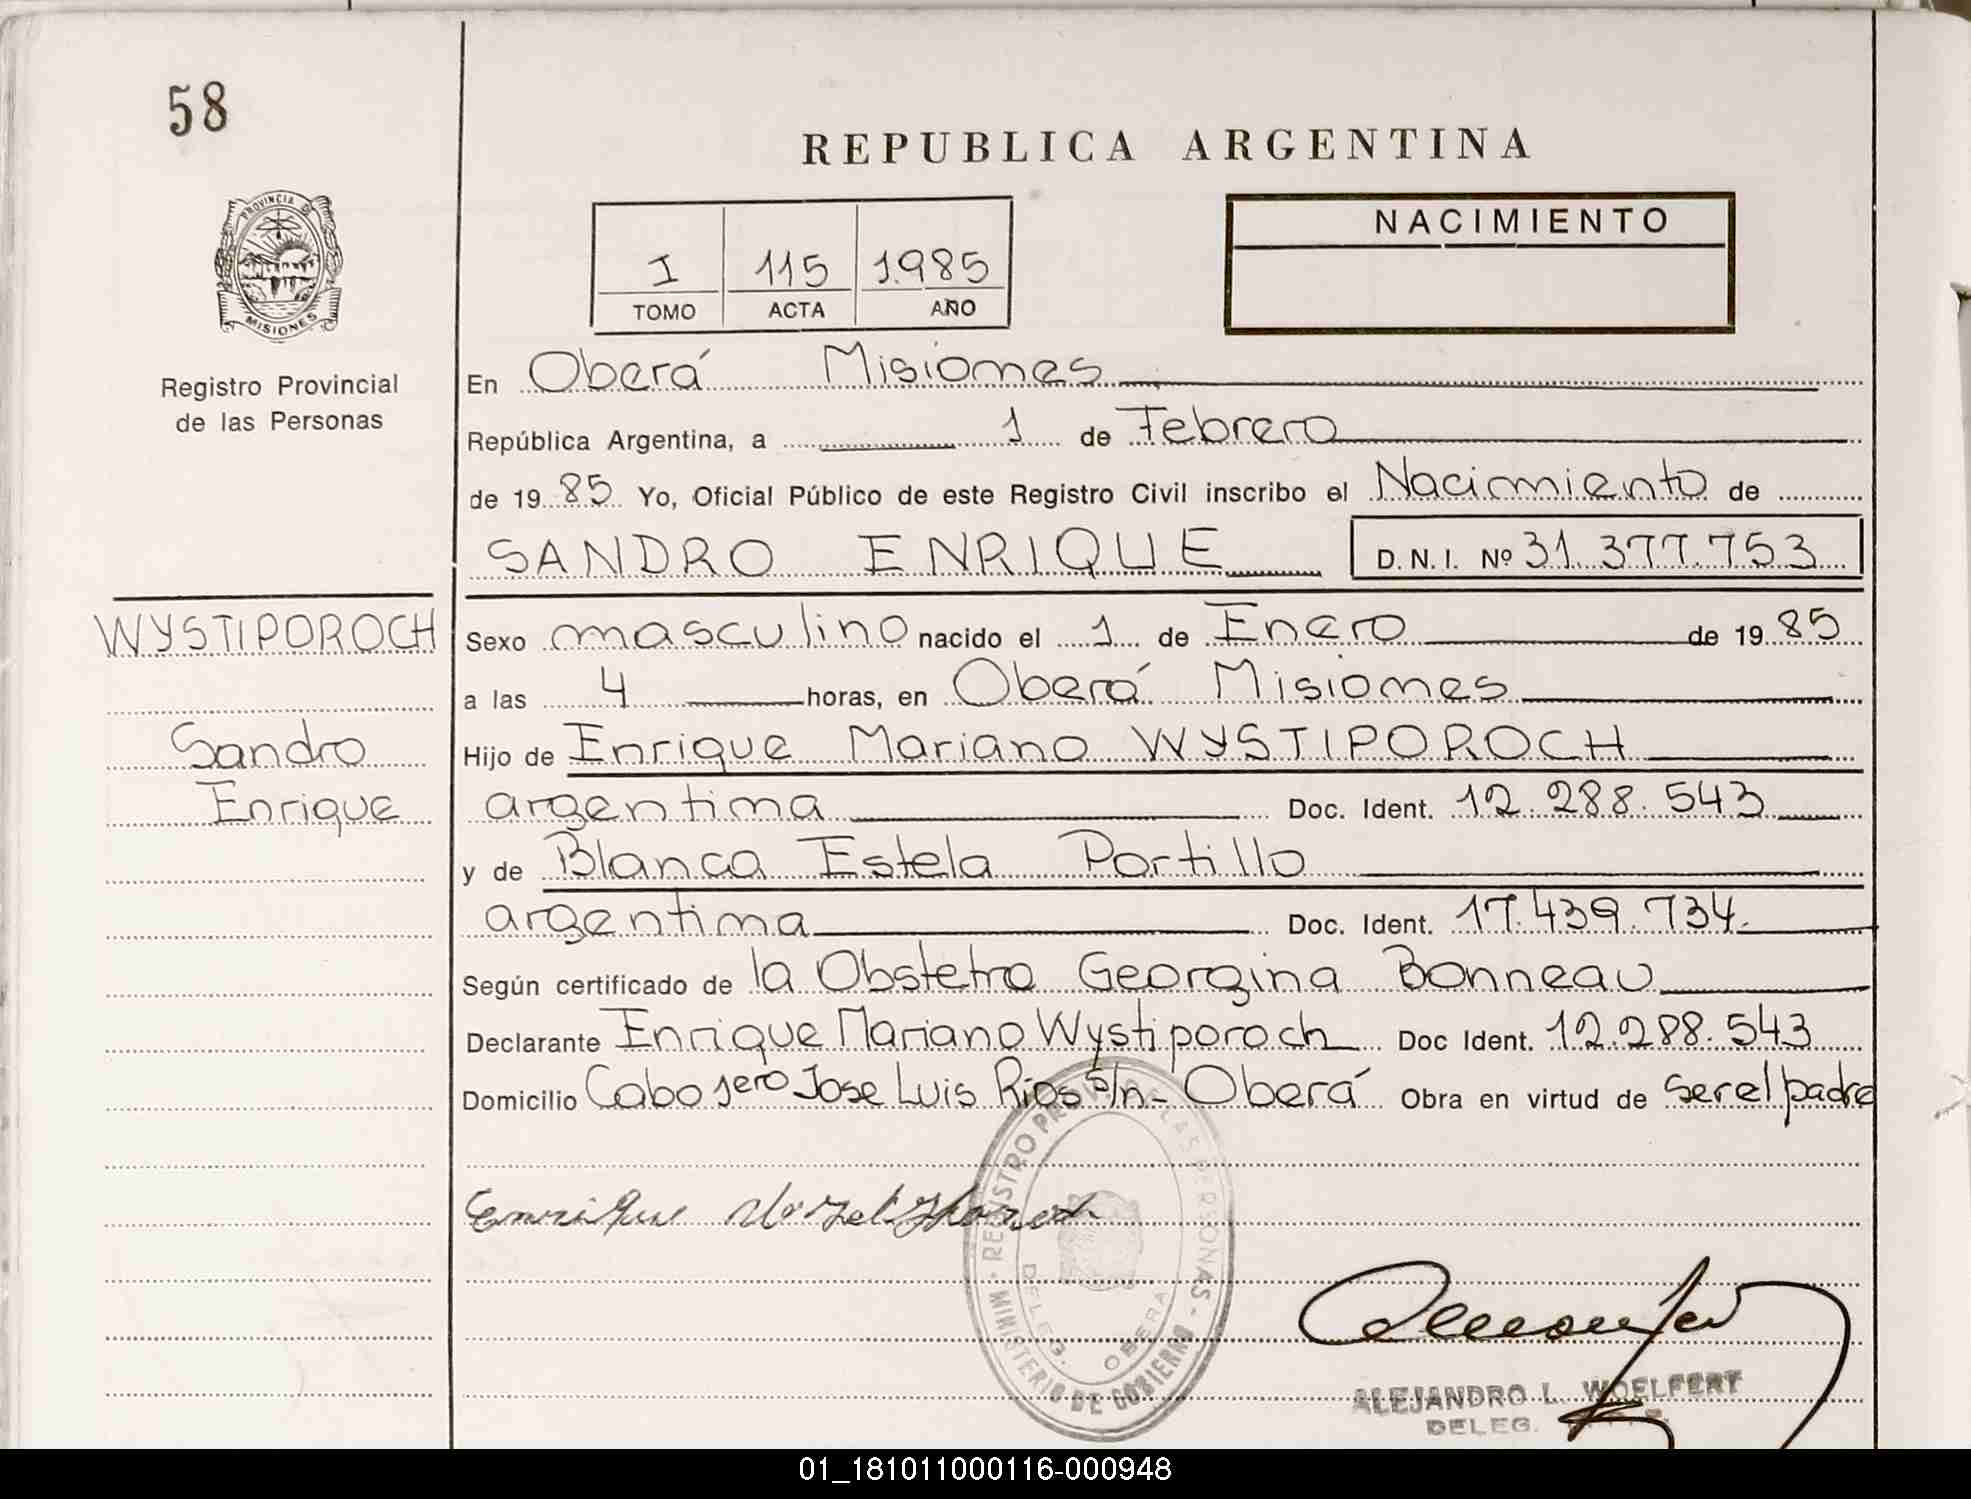 58
REPUBLICA ARGENTINA
PROVINCIA DE
MISIONES
Registro Provincial
de las Personas
I 115 1985
TOMO ACTA AÑO
NACIMIENTO
En Oberá Misiones
República Argentina, a 1 de Febrero
de 19 85 Yo, Oficial Público de este Registro Civil inscribo el Nacimiento de
SANDRO ENRIQUE D.N.I. Nº 31.377.753
WYSTIPOROCH
Sandro
Enrique
Sexo masculino nacido el 1 de Enero de 19 85
a las 4 horas, en Oberá Misiones
Hijo de Enrique Mariano WYSTIPOROCH
argentina Doc. Ident. 12.288.543
y de Blanca Estela Portillo
argentina Doc. Ident. 17.439.734
Según certificado de la Obstetra Georgina Bonneau
Declarante Enrique Mariano Wystiporoch Doc Ident. 12.288.543
Domicilio Cabo 1ero Jose Luis Rios s/n - Oberá Obra en virtud de ser el padre
MINISTERIO DE GOBIERNO - REGISTRO PROV. DE LAS PERSONAS -
DELEG. OBERA
ALEJANDRO L. WOELFERT
DELEG.
01_181011000116-000948